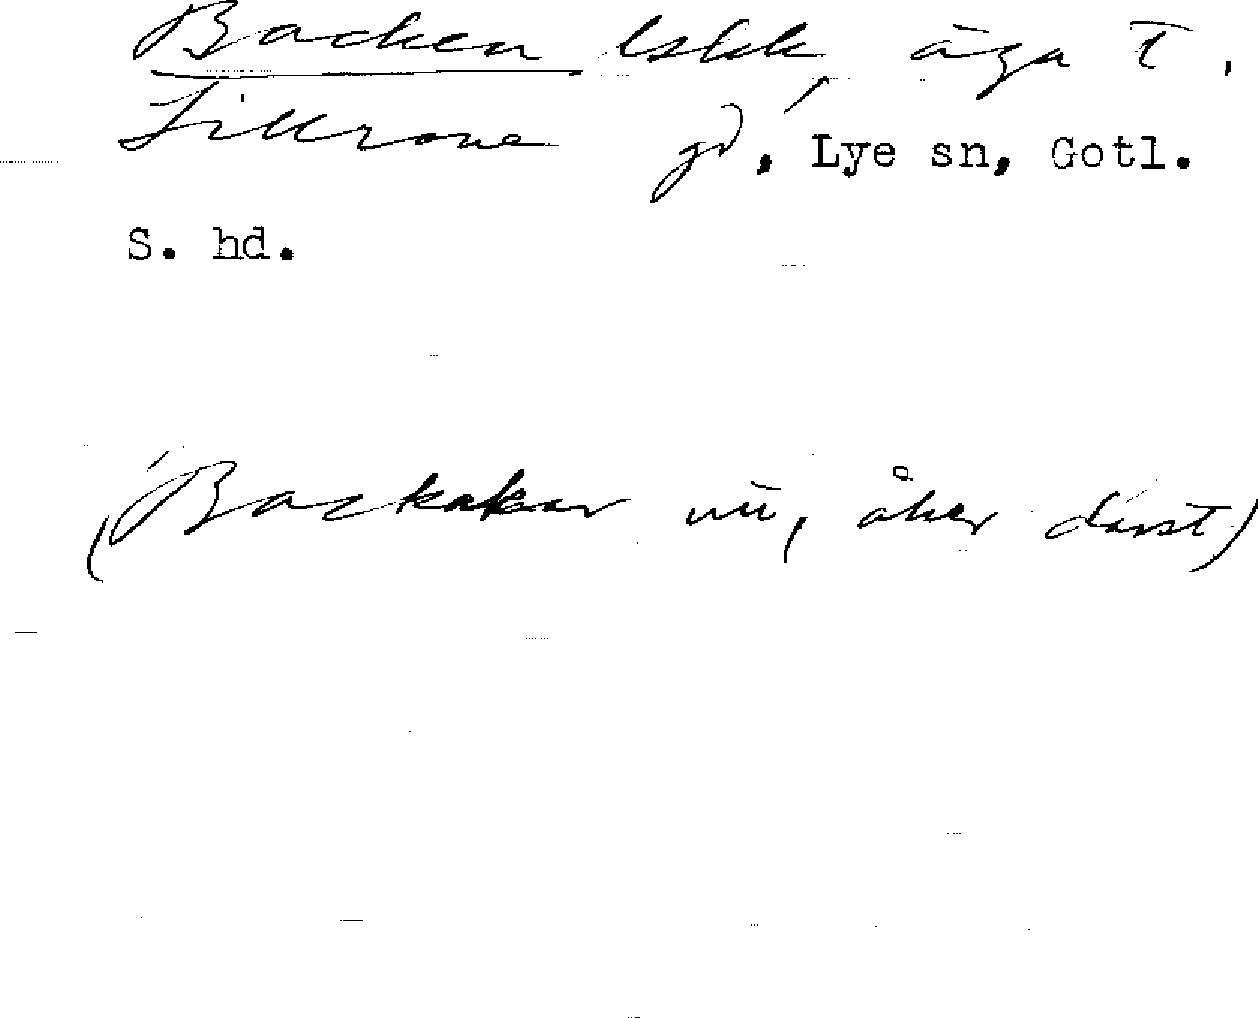 Backen lskk, äga t.
Lillrone gd, Lye sn, Gotl.
S. hd.
(Backakar nu, åker därst)